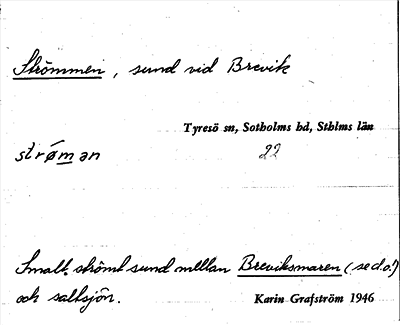 Strömmen, sund vid Brevik
Tyresö sn, Sotholms hd, Sthlms län
strǿman 22
Smalt, strömt sund mellan Breviksmaren (se d.o.!)
och saltsjön.
Karin Grafström 1946